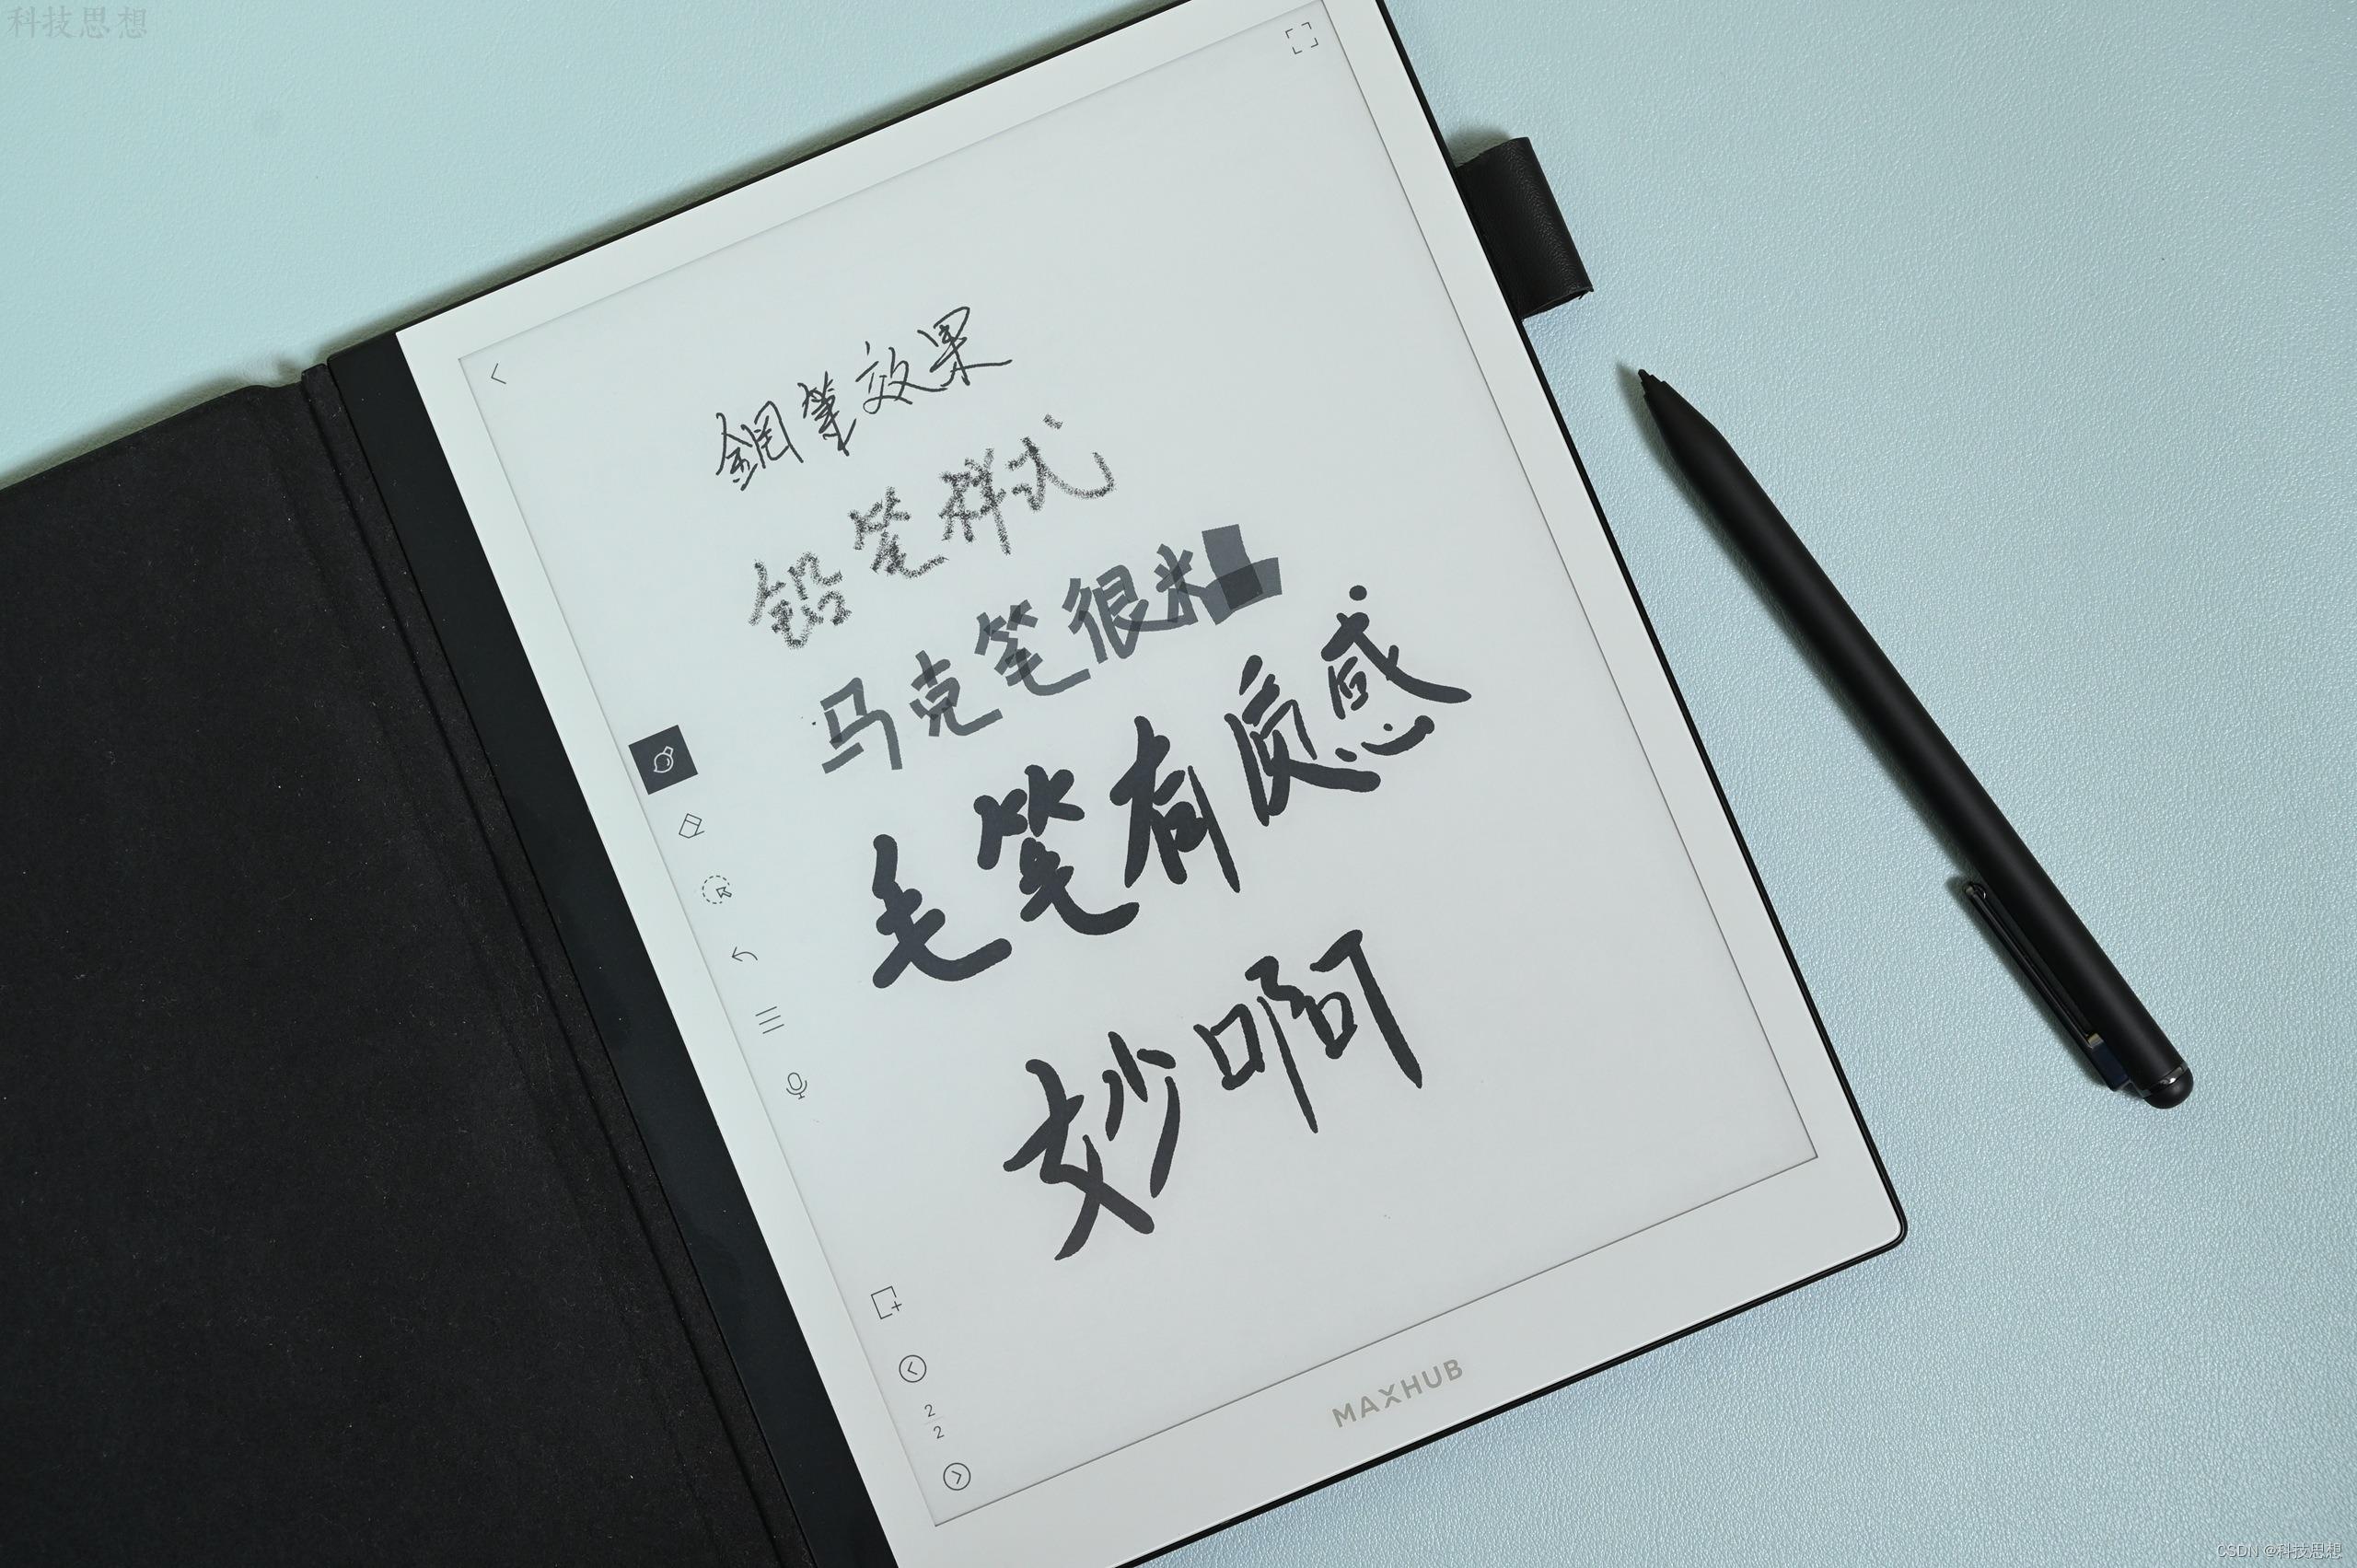 科技思想
鋼筆效果
铅笔样式
马克笔很粗
毛笔有质感
妙啊
2
2
MAXHUB
CSDN @科技思想